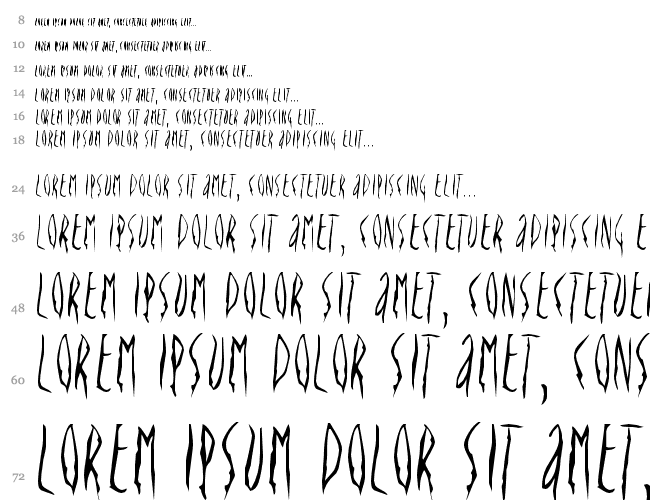 8 Lorem ipsum dolor sit amet, consectetuer adipiscing elit...
10 Lorem ipsum dolor sit amet, consectetuer adipiscing elit...
12 Lorem ipsum dolor sit amet, consectetuer adipiscing elit...
14 Lorem ipsum dolor sit amet, consectetuer adipiscing elit...
16 Lorem ipsum dolor sit amet, consectetuer adipiscing elit...
18 Lorem ipsum dolor sit amet, consectetuer adipiscing elit...
24 Lorem ipsum dolor sit amet, consectetuer adipiscing elit...
36 Lorem ipsum dolor sit amet, consectetuer adipiscing e
48 Lorem ipsum dolor sit amet, consectetue
60 Lorem ipsum dolor sit amet, cons
72 Lorem ipsum dolor sit amet,